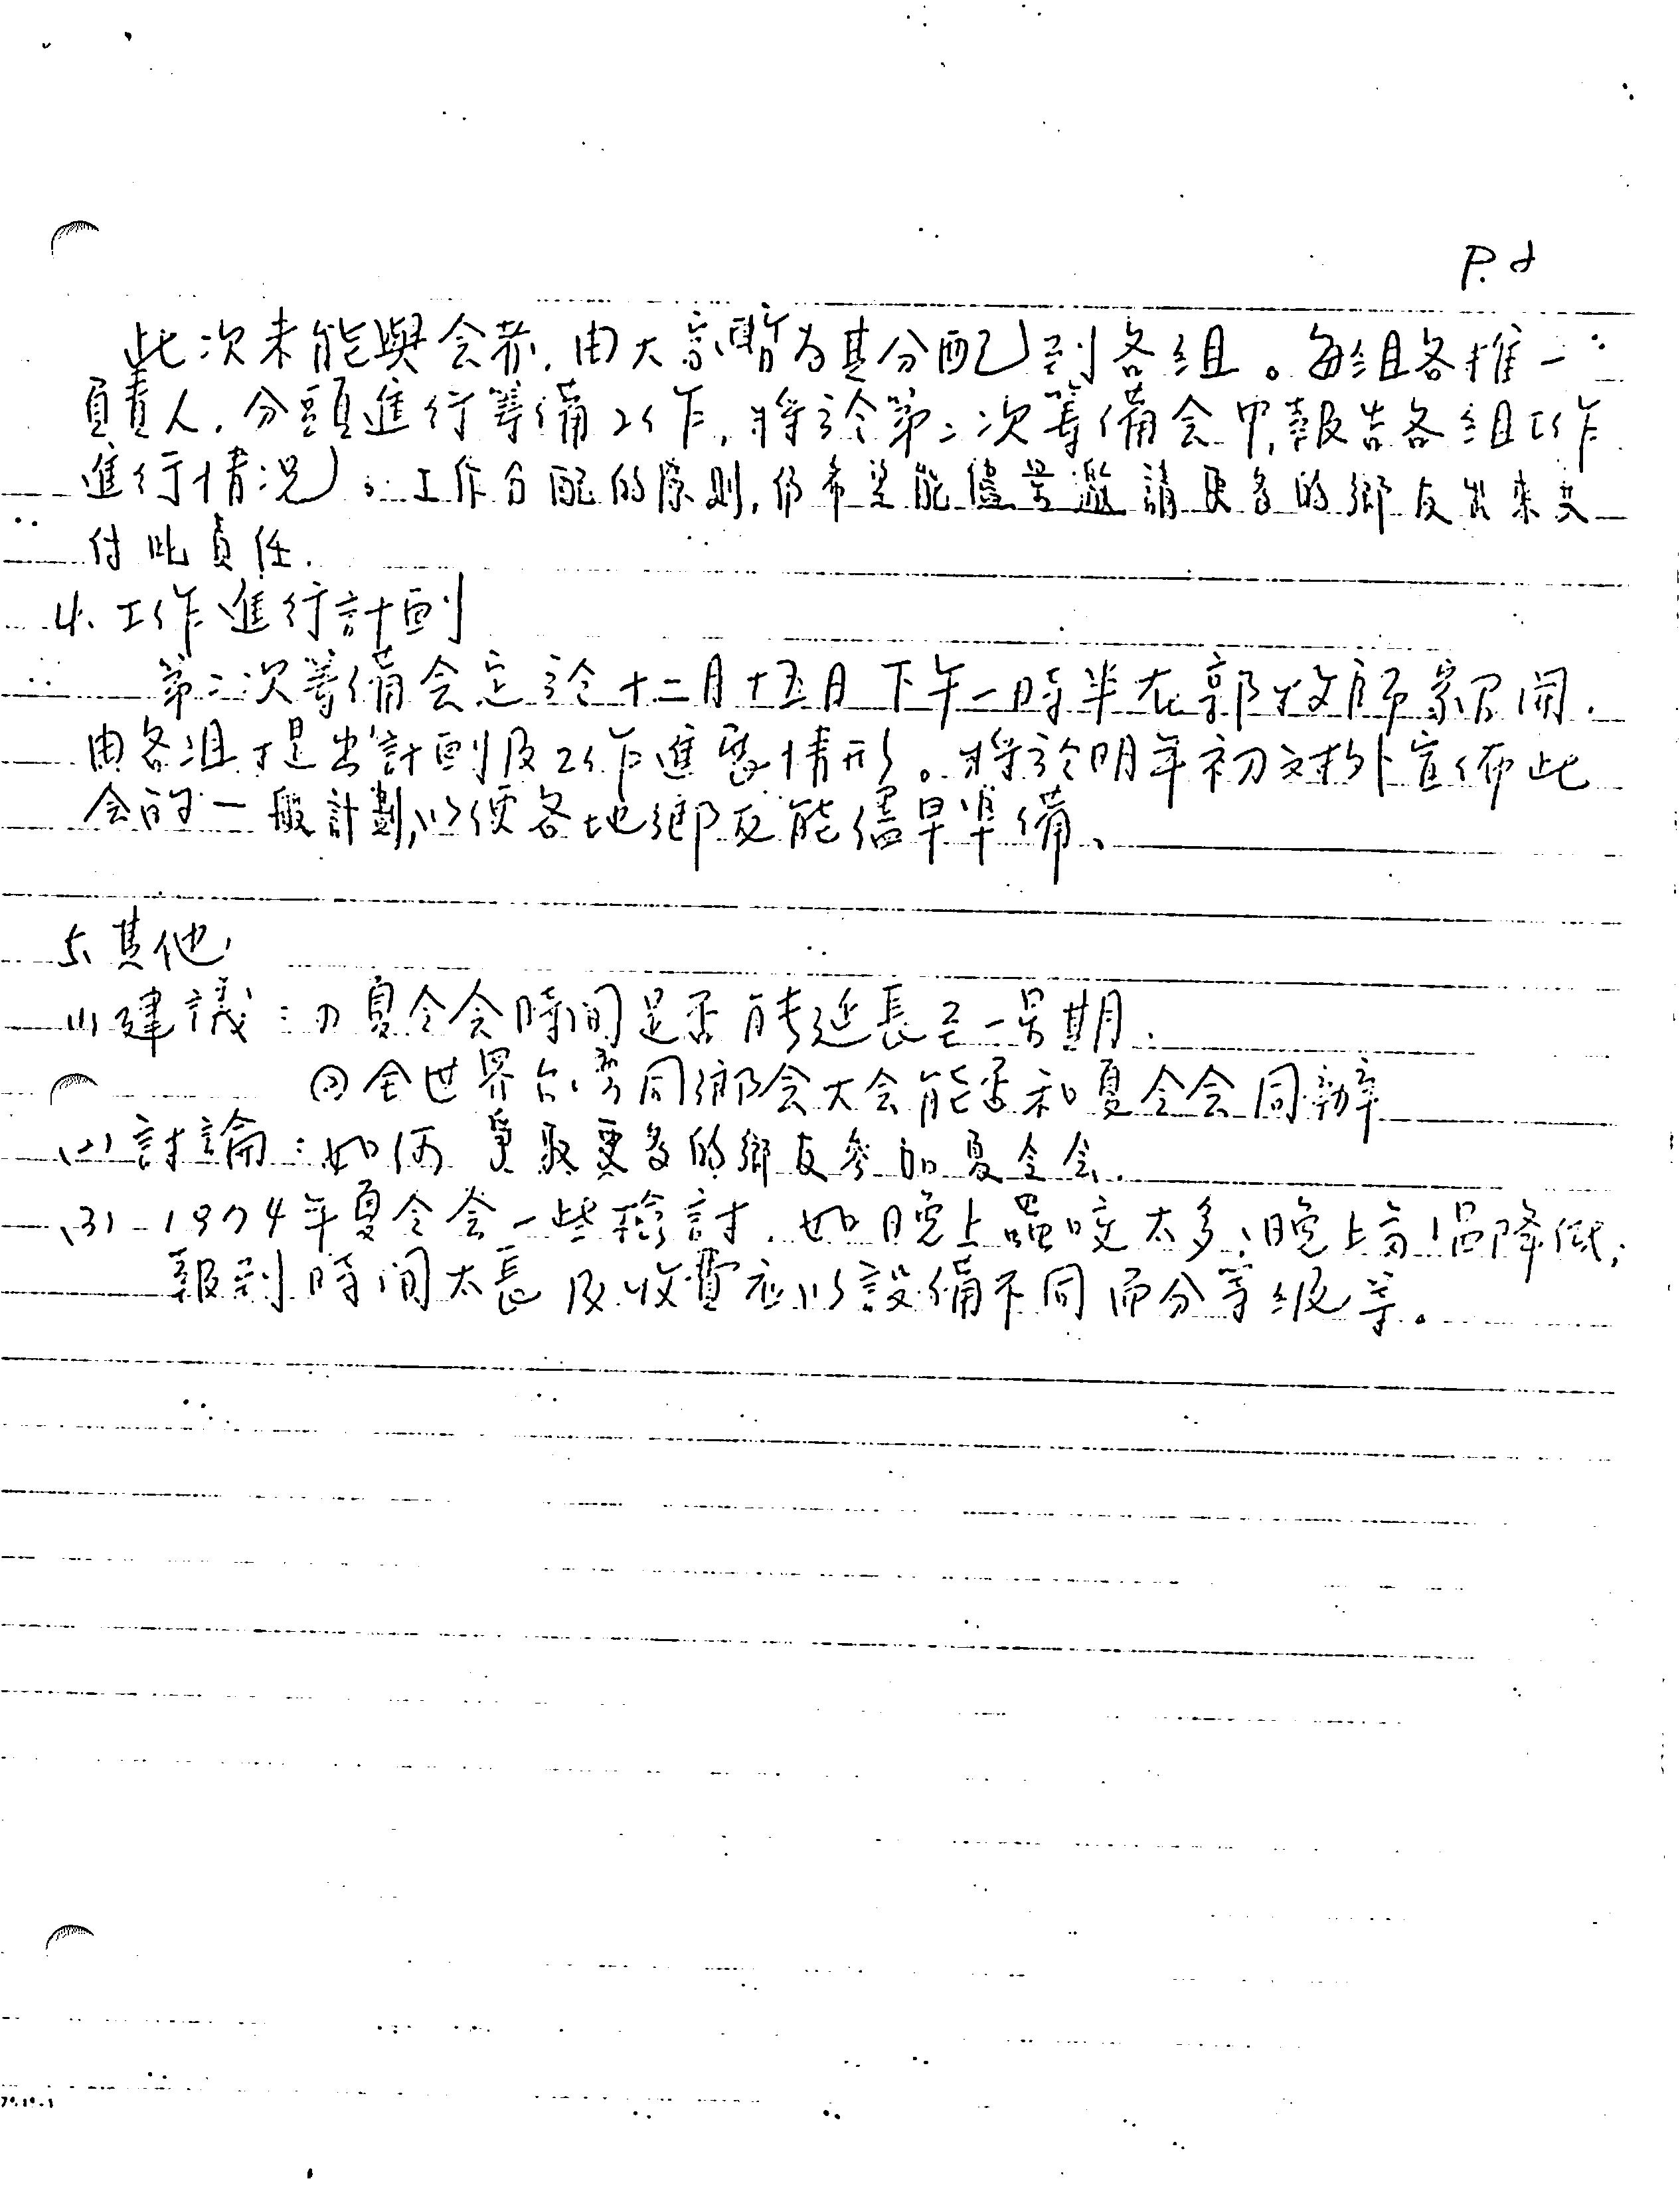 P. 2
此次未能與会者，由大家暫為其分配到各組。每組各推一
負責人，分頭進行籌備工作，將於第二次籌備会中，報告各組工作
進行情況。工作分配的原則，仍希望能儘量邀請更多的鄉友出來共
付此責任.
4. 工作進行計劃
第二次籌備会定於十二月十五日下午一時半在郭牧師家召開.
由各組提出計劃及工作進展情形。將於明年初对外宣佈此
会的一般計劃，以便各地鄉友能儘早準備、
5. 其他
(1) 建議：① 夏令会時间是否能延長至一星期.
② 全世界台湾同鄉会大会能否和夏令会同辦
(2) 討論：如何爭取更多的鄉友参加夏令会.
(3) 1974年夏令会一些檢討. 如晚上蟲咬太多、晚上氣温降低；
報到時间太長及收費应以設備不同而分等级等。